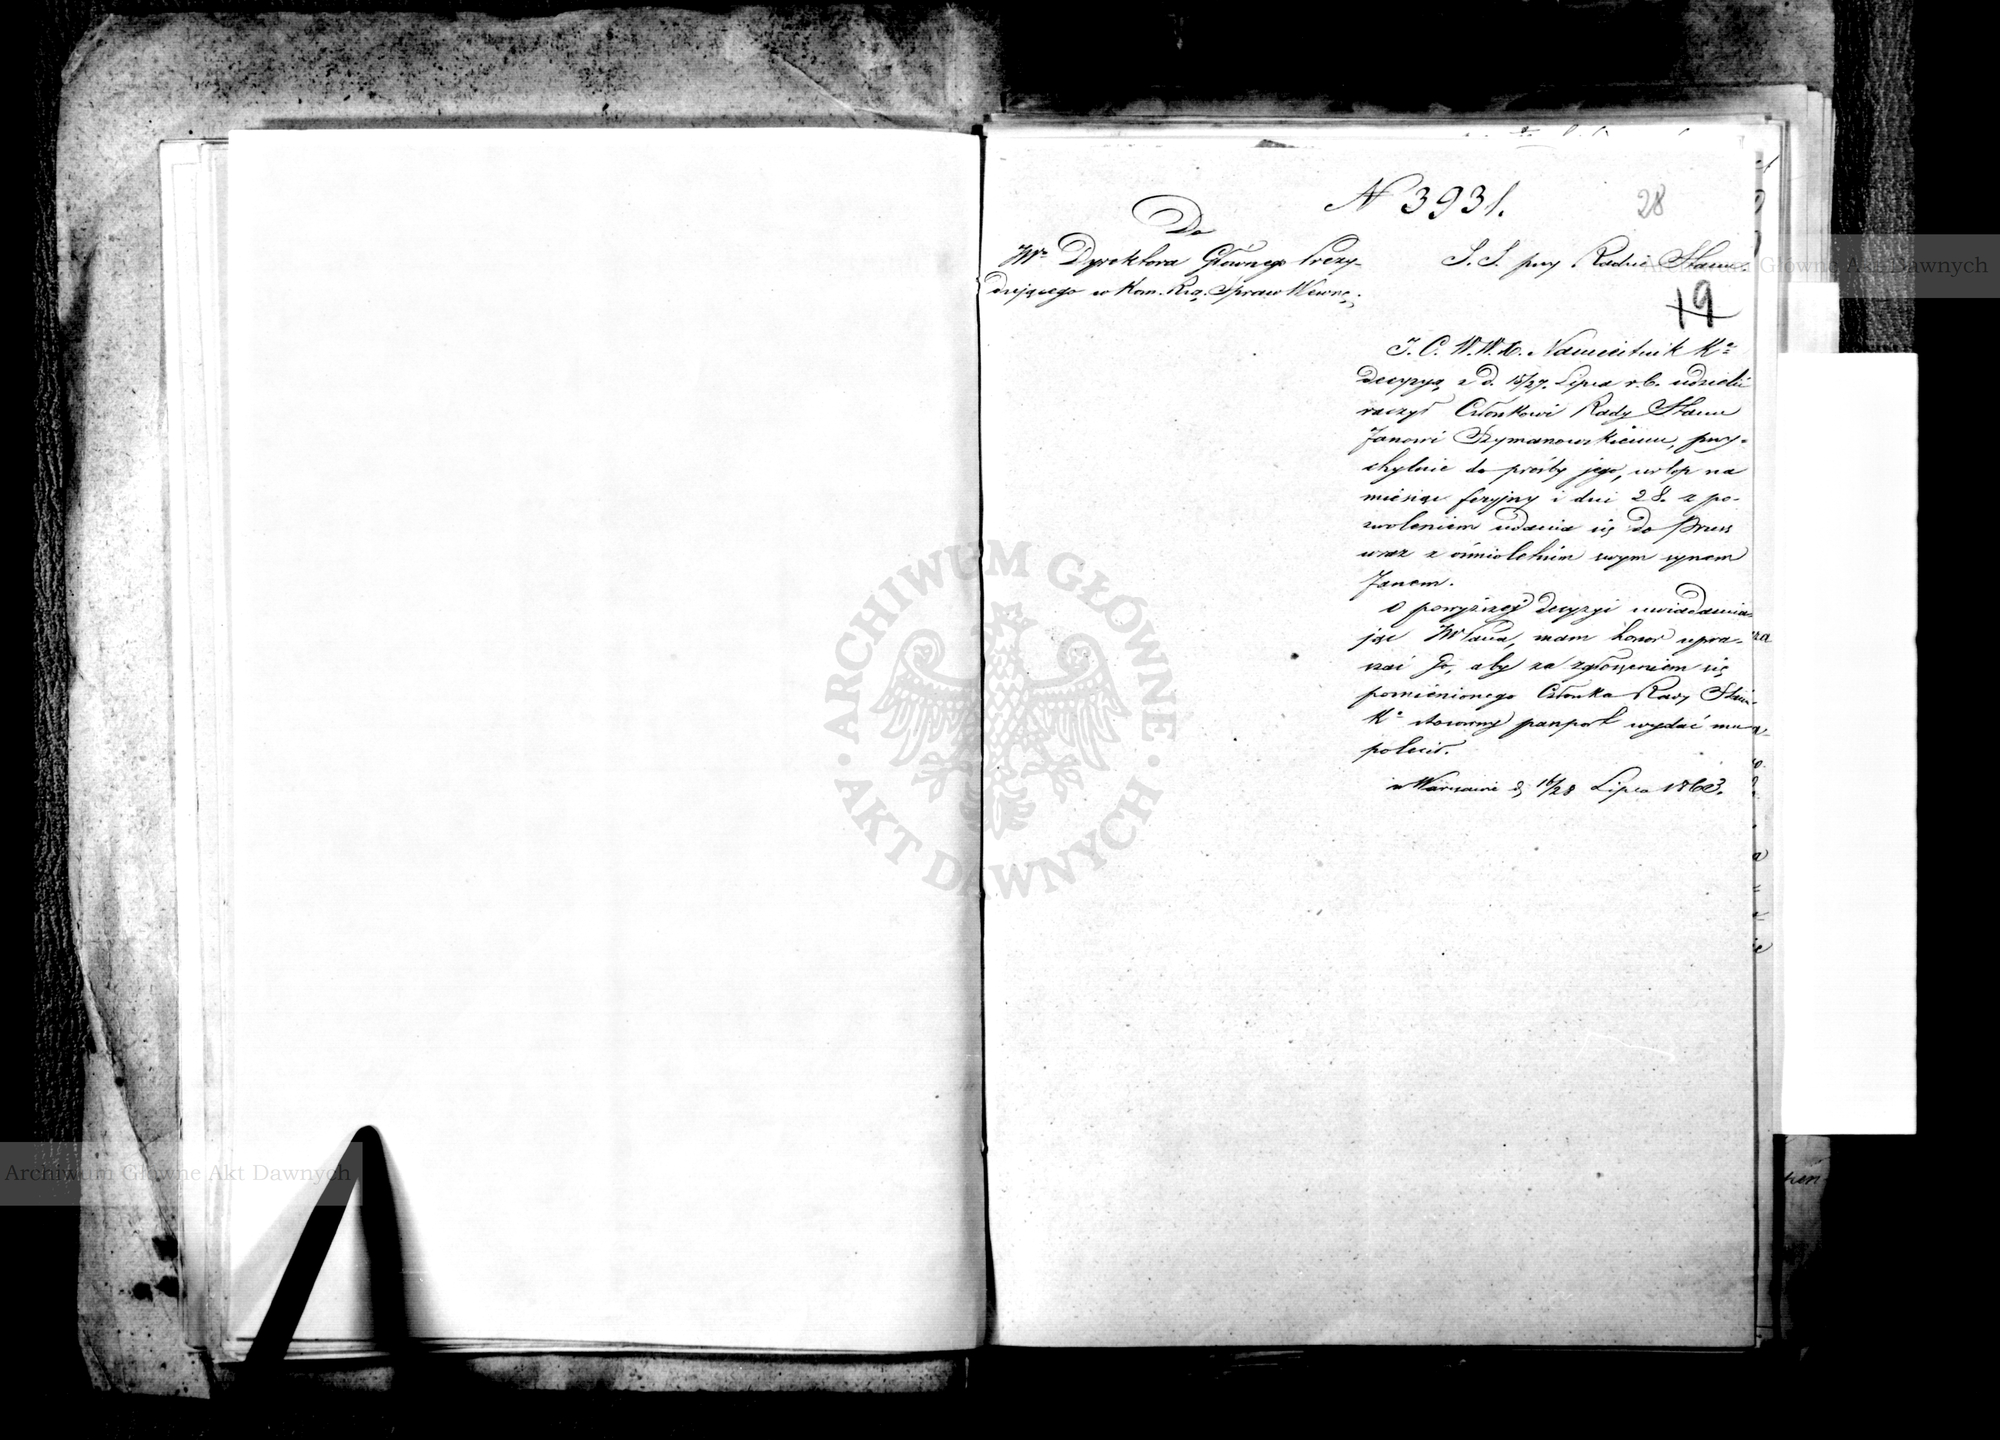 N 3931.
28
Do
JWo Dyrektora Głównego Prezy-
dującego w Kom. Rzą. Spraw Wewnę.
S. S. przy Radzie Stanu
19
J. C. W. W. X. Namiestnik Ka
decyzyą z d. 15/27. Lipca r. b. udzielić
raczył Członkowi Rady Stanu
Janowi Szymanowskiemu, przy-
chylnie do prośby jego, urlop na
miesiąc feryjny i dni 28. z po-
zwoleniem udania się do Pruss
wraz z ośmioletnim swym synem
Janem.
O powyższej decyzyi uwiadamia-
jąc JWPana, mam honor upra-
szać Go, aby za zgłoszeniem się
pomienionego Członka Rady Stanu
Ka stosowny paszport wydać mu
polecił.
w Warszawie d. 16/28 Lipca 1863.
ARCHIWUM GŁÓWNE
AKT DAWNYCH
Archiwum Główne Akt Dawnych
Archiwum Główne Akt Dawnych